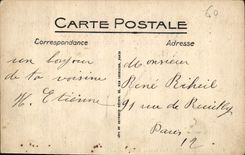 60
CARTE POSTALE
Correspondance
Adresse
un bonjour
de ta voisine
H. Etienne
Monsieur
René Riheil
91 rue de Reuilly
Paris
12